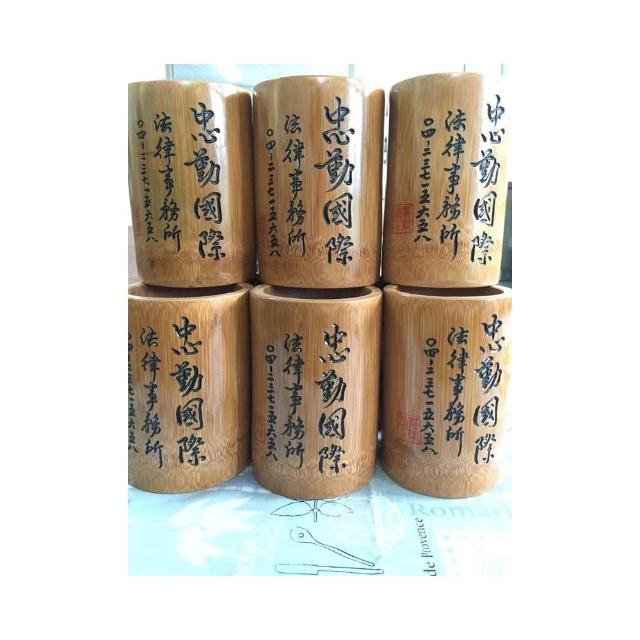 忠勤國際
法律事務所
〇四-二三七一五六五八
忠勤國際
法律事務所
〇四-二三七一五六五八
忠勤國際
法律事務所
〇四-二三七一五六五八
忠勤國際
法律事務所
〇四-二三七一五六五八
忠勤國際
法律事務所
〇四-二三七一五六五八
忠勤國際
法律事務所
〇四-二三七一五六五八
Romari
de Provence